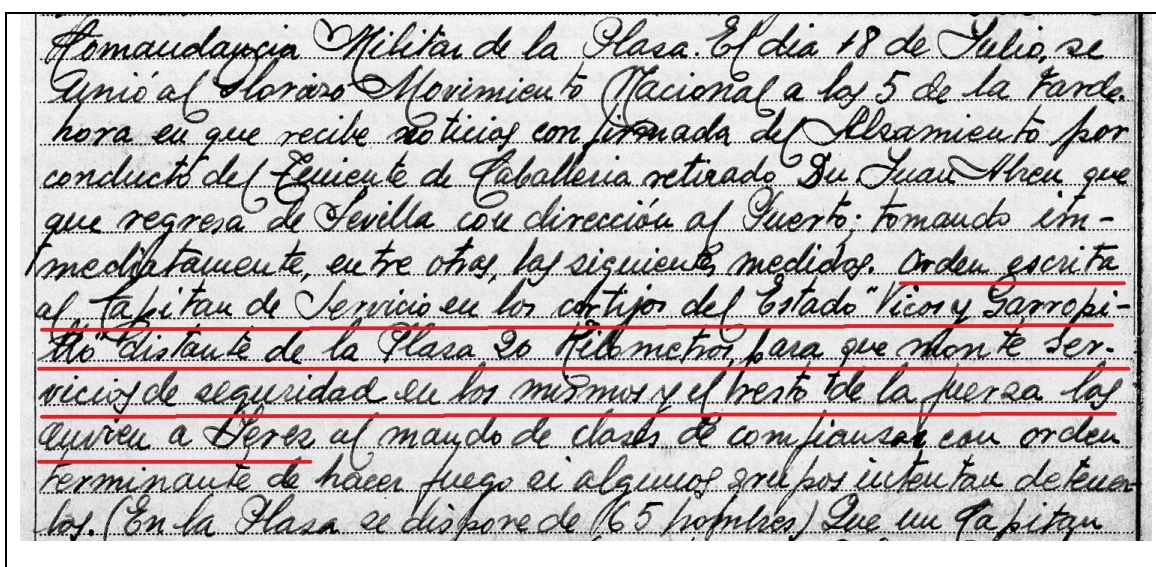 Comandancia Militar de la Plasa. El dia 18 de Julio, se
unió al Glorioso Movimiento Nacional a las 5 de la tarde.
hora en que recibe noticias confirmada del Alsamiento por
conducto del Teniente de Caballeria retirado Dn Juan Abreu que
que regresa de Sevilla con dirección al Puerto; tomando im-
mediatamente, entre otras, las siguientes medidas. Orden escrita
al Capitan de Servicio en los cortijos del Estado "Vicos y Garropi-
llo" distante de la Plasa 20 Kilometros, para que monte ser-
vicios de seguridad en los mismos y el resto de la fuersa los
envien a Jeres al mando de clases de confiansa con orden
terminante de hacer fuego si algunos grupos intentan detener-
los. (En la Plasa se dispone de 165 hombres) Que un Capitan